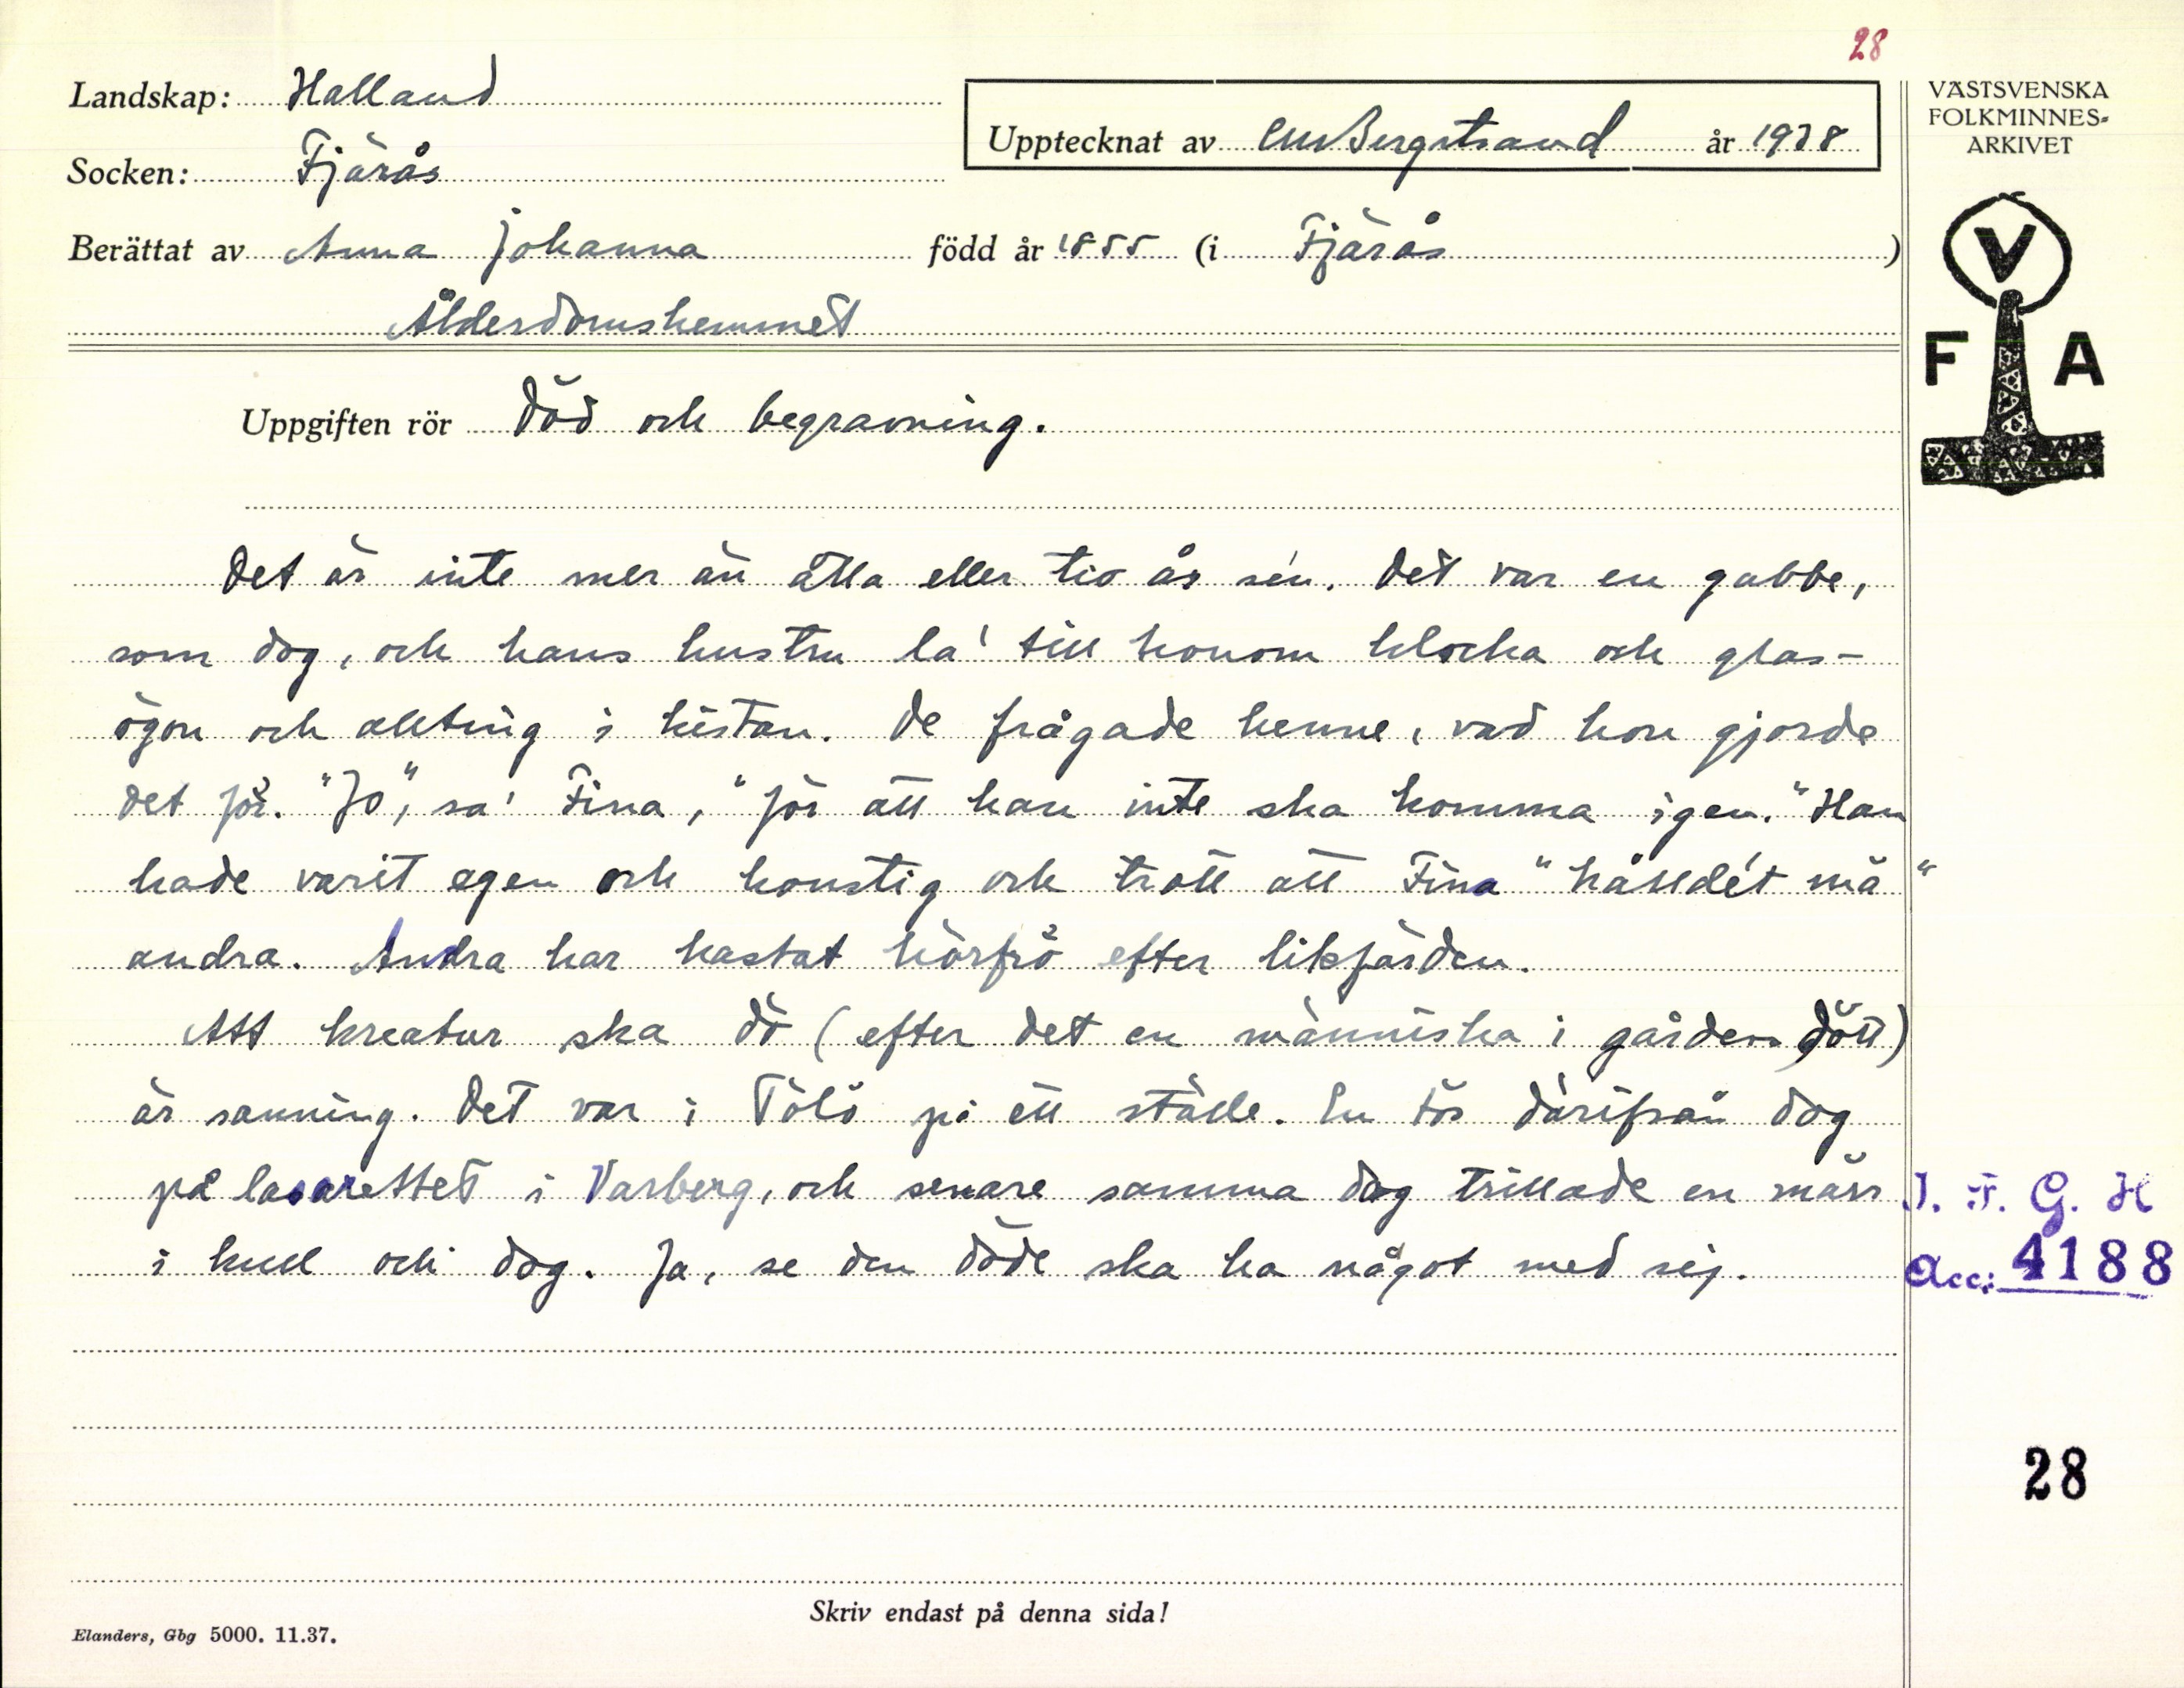 28
Landskap: Halland
Upptecknat av CM Bergstrand år 1938
VÄSTSVENSKA
FOLKMINNES-
ARKIVET
Socken: Fjärås
Berättat av Anna Johanna född år 1855 (i Fjärås)
Ålderdomshemmet
V
F A
Uppgiften rör Död och begravning.
Det är inte mer än åtta eller tio år sén. Det var en gubbe,
som dog, och hans hustru la' till honom klocka och glas-
ögon och allting i kistan. De frågade henne, vad hon gjorde
det för. "Jo", sa' Fina, "för att han inte ska komma igen." Han
hade varit egen och konstig och trott att Fina "hålldét mä"
andra. Andra har kastat hörfrö efter likfärden.
Att kreatur ska dö (efter det en människa i gården dött)
är sanning. Det var i Tölö på ett ställe. En tös därifrån dog
på lasarettet i Varberg, och senare samma dag trillade en märr
i kull och dog. Ja, se den döde ska ha något med sej.
I. F. G. H
Acc: 4188
28
Skriv endast på denna sida!
Elanders, Gbg 5000. 11.37.